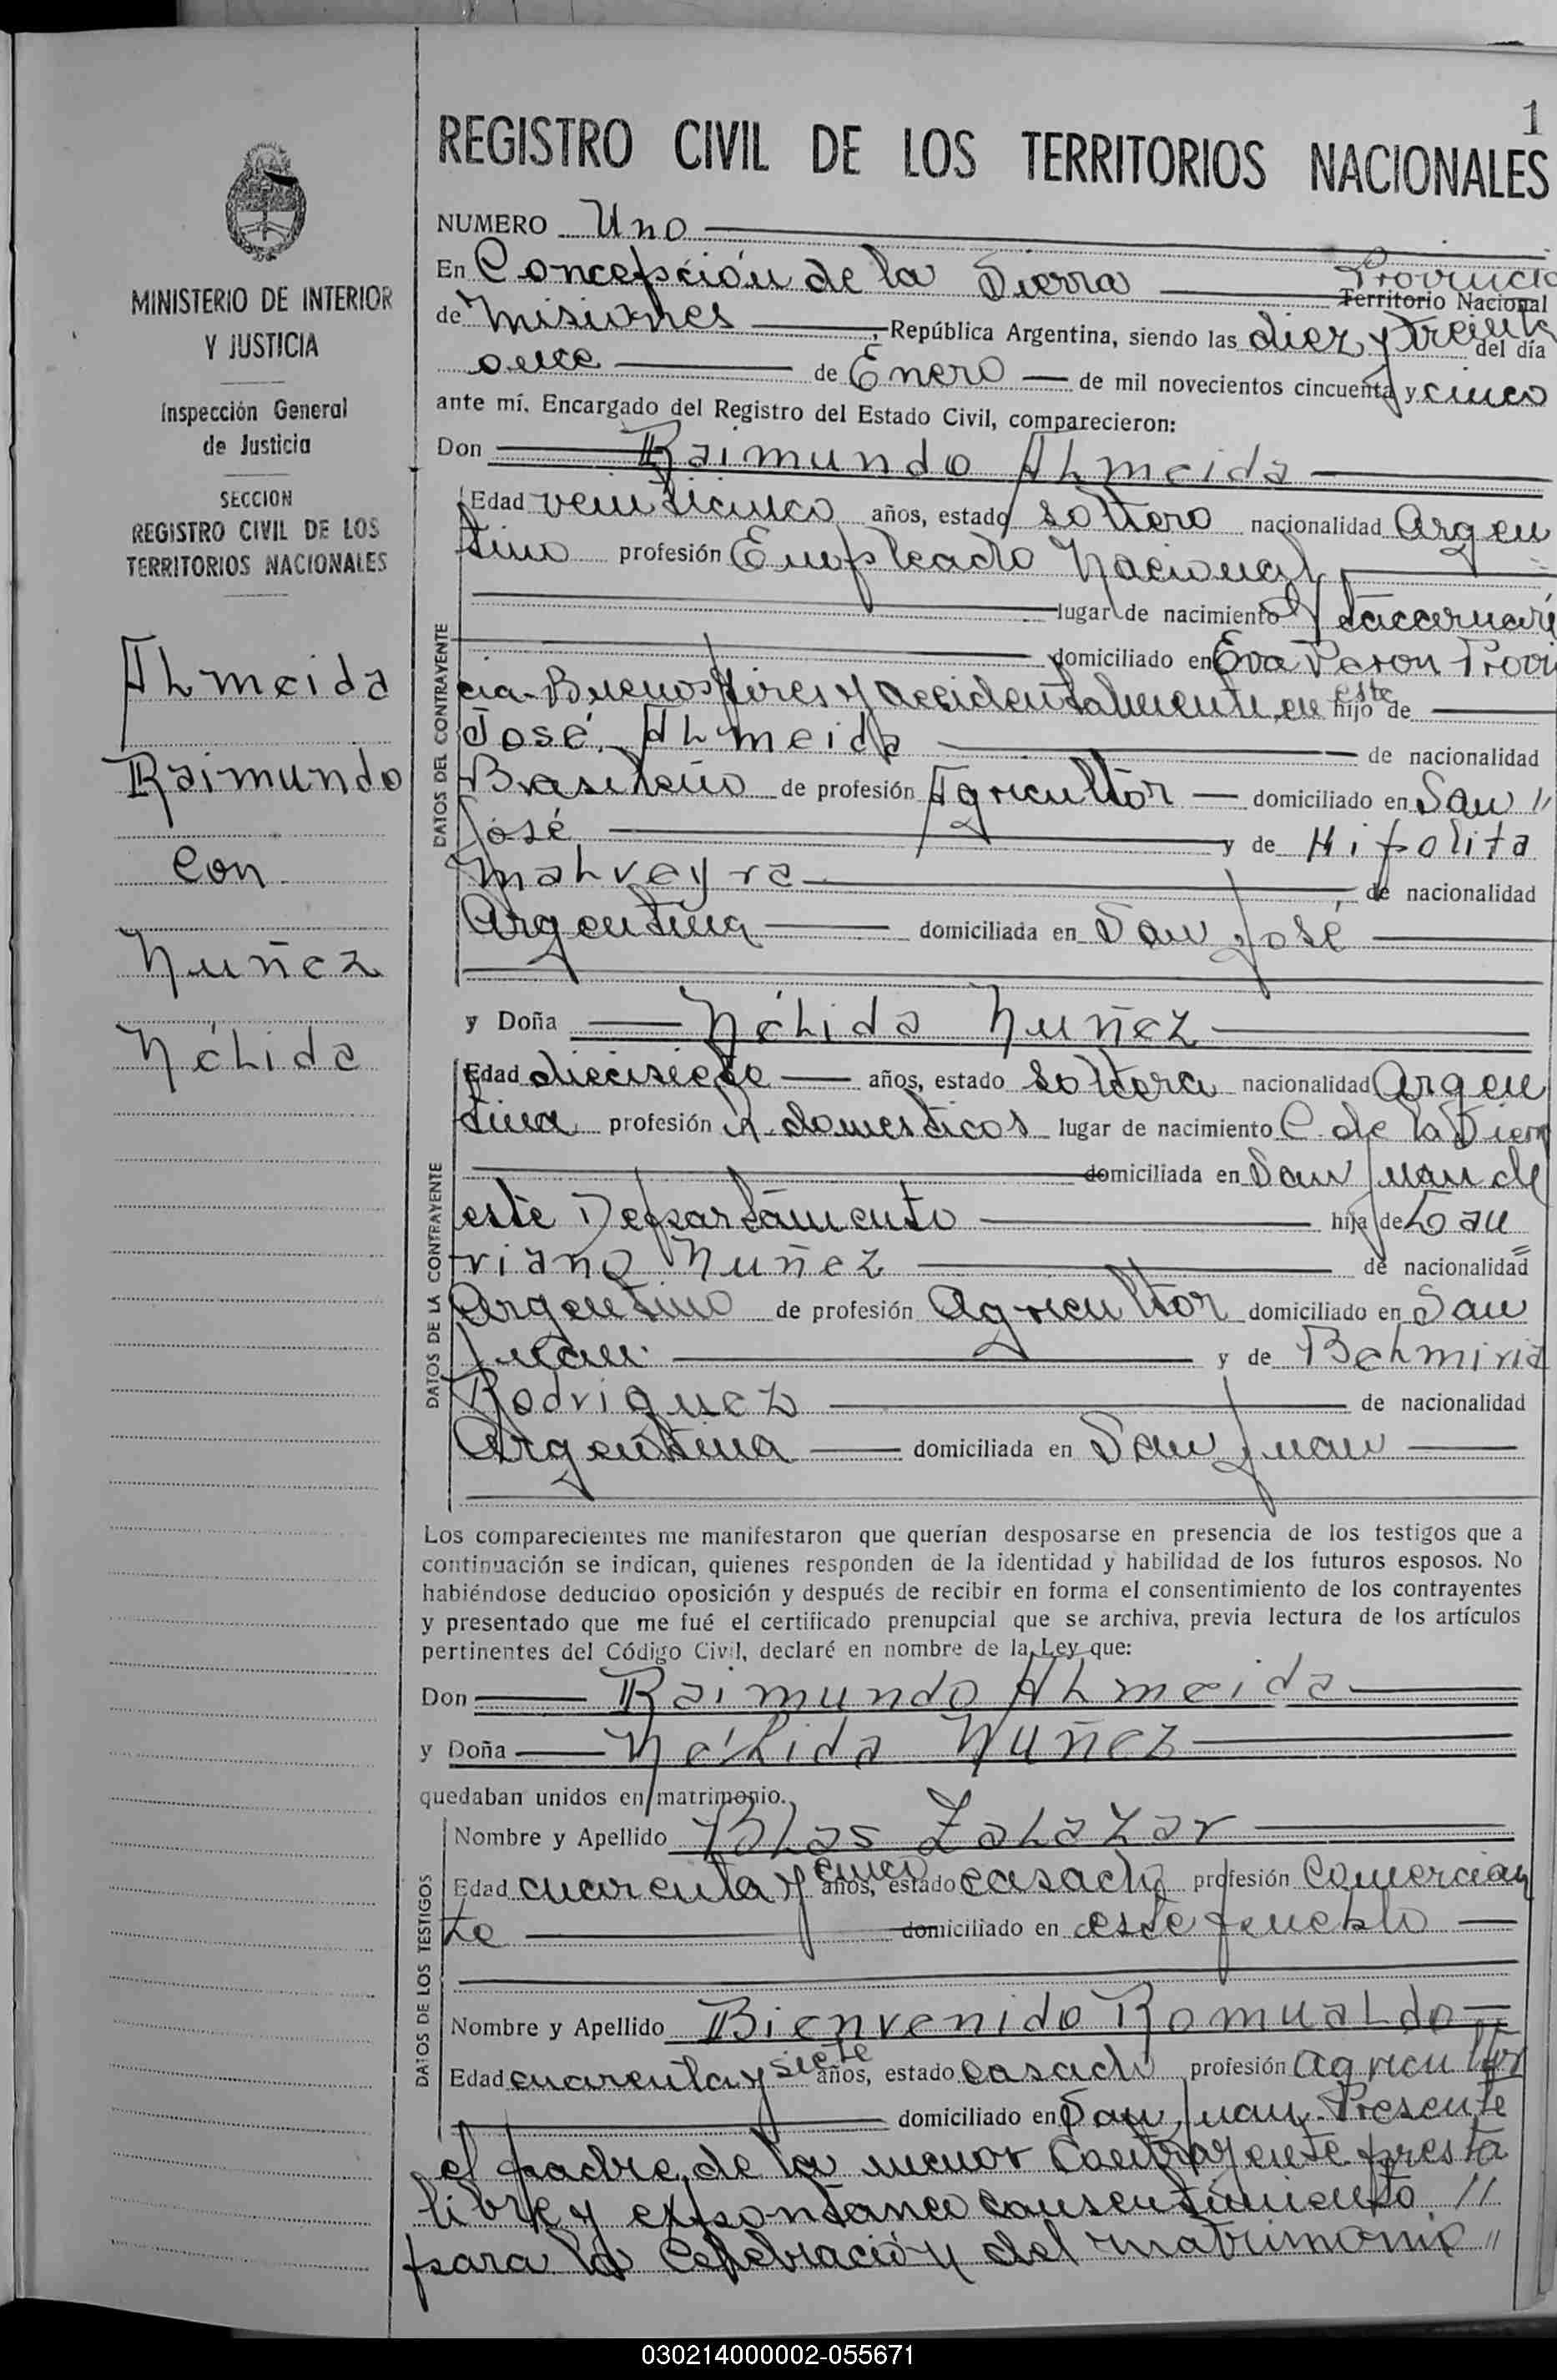 1
REGISTRO CIVIL DE LOS TERRITORIOS NACIONALES
MINISTERIO DE INTERIOR
Y JUSTICIA
Inspección General
de Justicia
SECCION
REGISTRO CIVIL DE LOS
TERRITORIOS NACIONALES
Almeida
Raimundo
con
Nuñez
Nélida
NUMERO Uno
En Concepción de la Sierra Provincia
Territorio Nacional
de Misiones, República Argentina, siendo las diez y treinta del día
once de Enero de mil novecientos cincuenta y cinco
ante mí, Encargado del Registro del Estado Civil, comparecieron:
Don Raimundo Almeida
DATOS DEL CONTRAYENTE
Edad veinticinco años, estado soltero nacionalidad Argen
tino profesión Empleado Nacional
lugar de nacimiento
domiciliado en Eva Peron Provin
cia Buenos Aires y accidentalmente en este hijo de
José Almeida de nacionalidad
Brasileño de profesión Agricultor domiciliado en San //
José y de Hipolita
Malveyra de nacionalidad
Argentina domiciliada en San José
y Doña Nélida Nuñez
DATOS DE LA CONTRAYENTE
Edad diecisiete años, estado soltera nacionalidad Argen
tina profesión q. domesticos lugar de nacimiento C. de la Sierra
domiciliada en San Juan de
este Departamento hija de Lau
riano Nuñez de nacionalidad
Argentino de profesión Agricultor domiciliado en San
Juan y de Belmiria
Rodriguez de nacionalidad
Argentina domiciliada en San Juan
Los comparecientes me manifestaron que querían desposarse en presencia de los testigos que a
continuación se indican, quienes responden de la identidad y habilidad de los futuros esposos. No
habiéndose deducido oposición y después de recibir en forma el consentimiento de los contrayentes
y presentado que me fué el certificado prenupcial que se archiva, previa lectura de los artículos
pertinentes del Código Civil, declaré en nombre de la Ley que:
Don Raimundo Almeida
y Doña Nélida Nuñez
quedaban unidos en matrimonio.
DATOS DE LOS TESTIGOS
Nombre y Apellido Blas Zalazar
Edad cuarenta y cinco años, estado casado profesión Comercian
te domiciliado en este pueblo
Nombre y Apellido Bienvenido Romualdo
Edad cuarenta y siete años, estado casado profesión agricultor
domiciliado en San Juan. Presente
el padre de la menor Contrayente presta
libre y expontaneo consentimiento //
para la Celebración del matrimonio //
030214000002-055671